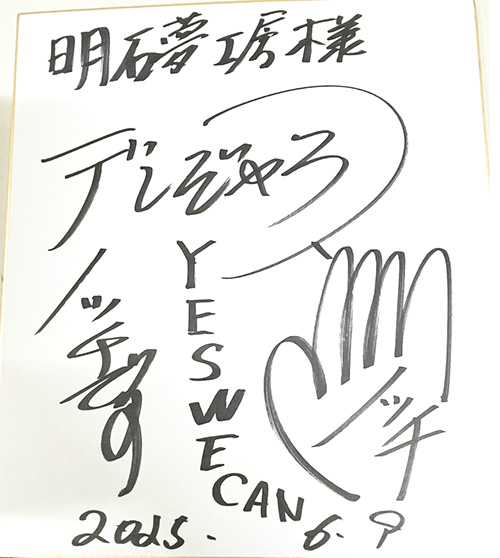 明石夢工房様
デンジャラス
ノッチ
YES WE CAN
ノッチ
2025. 6. 9